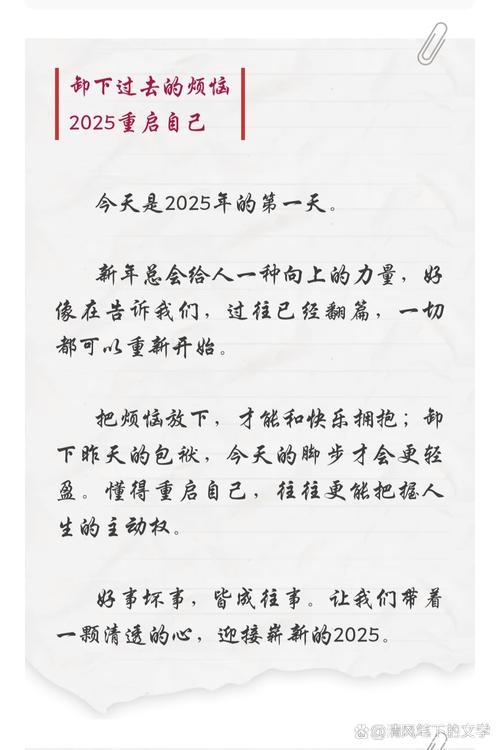 卸下过去的烦恼
2025重启自己
今天是2025年的第一天。
新年总会给人一种向上的力量，好
像在告诉我们，过往已经翻篇，一切
都可以重新开始。
把烦恼放下，才能和快乐拥抱；卸
下昨天的包袱，今天的脚步才会更轻
盈。懂得重启自己，往往更能把握人
生的主动权。
好事坏事，皆成往事。让我们带着
一颗清透的心，迎接崭新的2025。
@清风笔下的文学